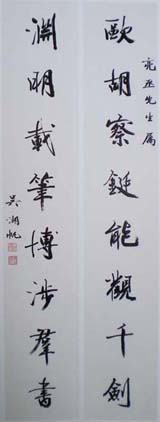 亮丞先生屬
歐胡察鋌能觀千劍
淵明載筆博涉羣書
吴湖帆